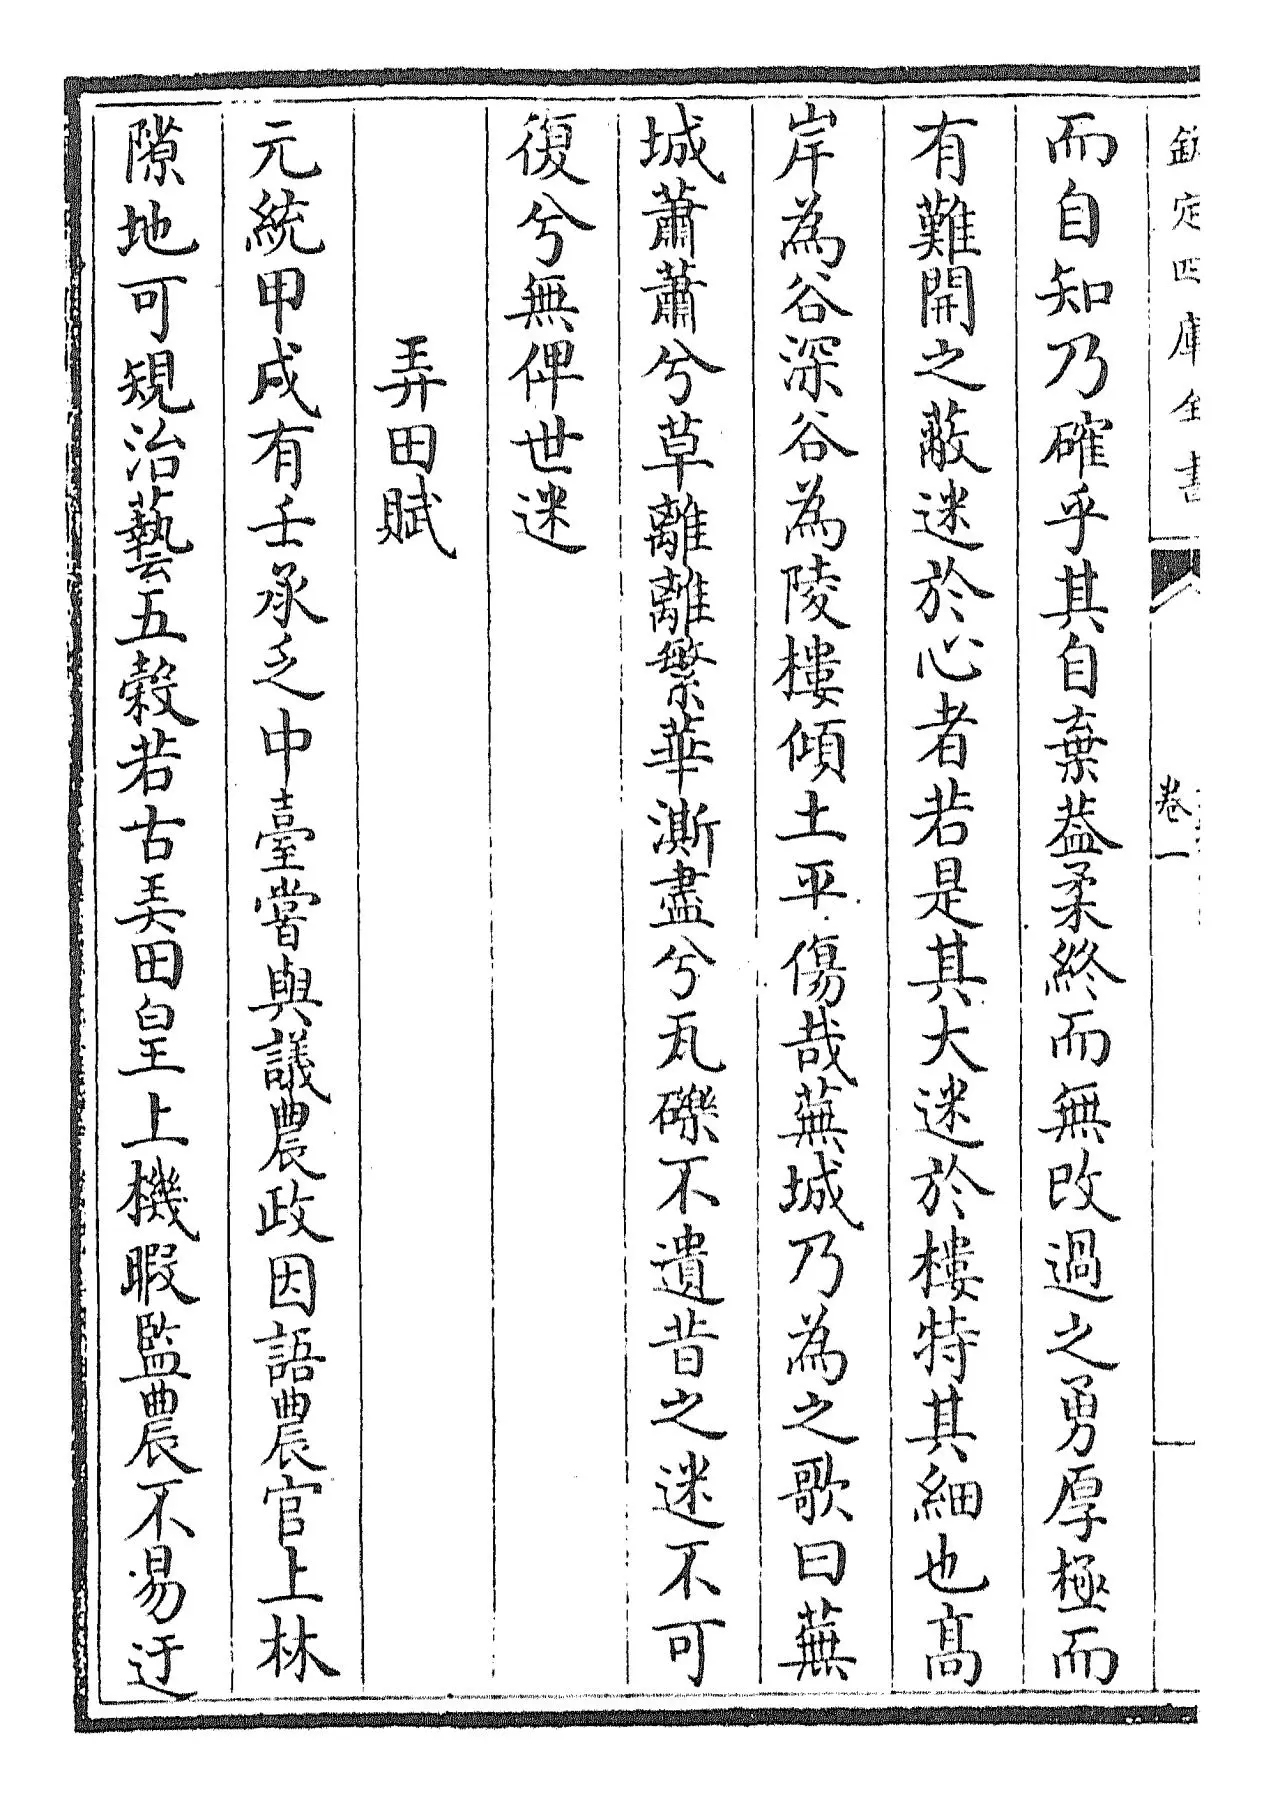 欽定四庫全書
卷一
而自知乃確乎其自棄葢柔終而無改過之勇厚極而
有難開之蔽迷於心者若是其大迷於樓特其細也髙
岸為谷深谷為陵樓傾土平傷哉蕪城乃為之歌曰蕪
城蕭蕭兮草離離繁華澌盡兮瓦礫不遺昔之迷不可
復兮無俾世迷
弄田賦
元統甲戌有壬承乏中臺嘗與議農政因語農官上林
隙地可規治藝五榖若古弄田皇上機暇監農不易迂